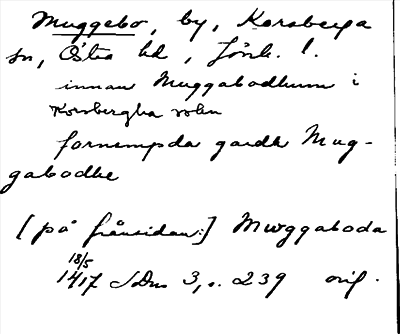 Muggebo, by, Korsberga
sn, Östra hd, Jönk. l.
innan Muggabodhum i
Korsbergha sokn
fornempda gardh Mug-
gabodhe
[på frånsidan:] Mwggaboda
18/5
1417 SDns 3, s. 239 orig.